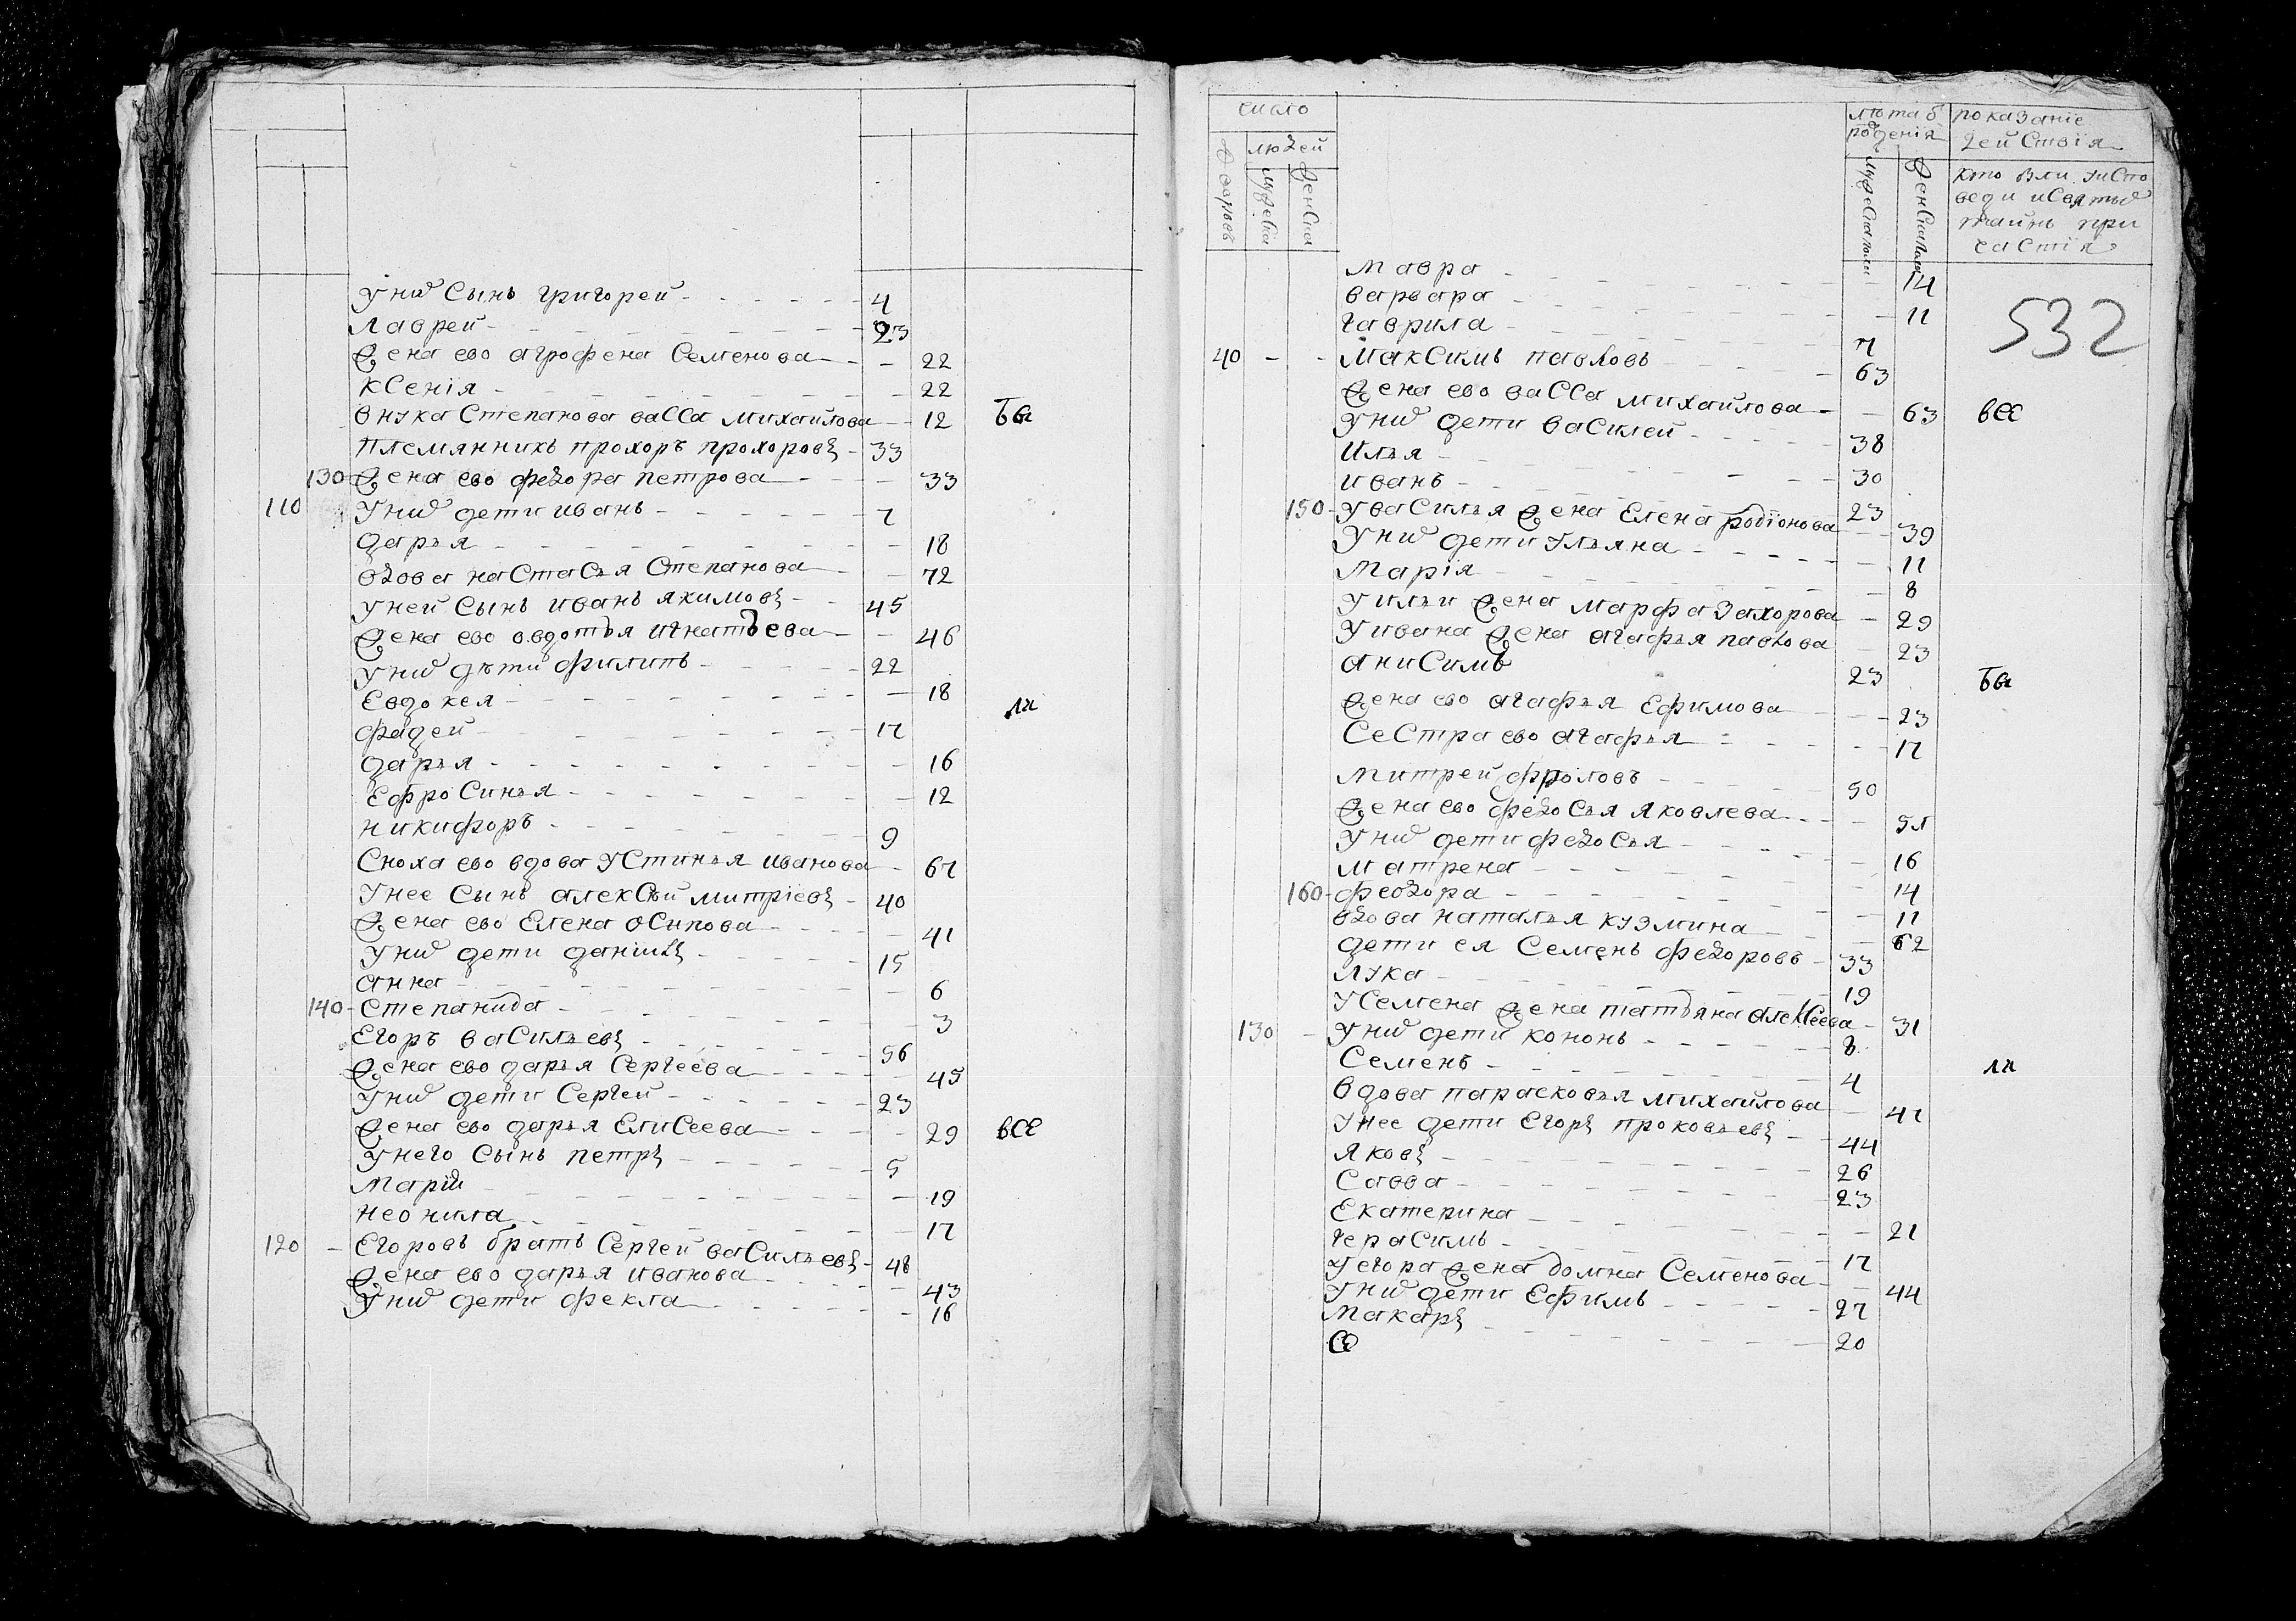 у них сынъ григорей - 4
лаврей - 23
жена ево агрофена семенова - 22
ксенiя - 22
внука степанова васса михайлова - 12 бы
племянникъ прохоръ прохоровъ - 33
130 - жена ево федора петрова - 33
110 у них дети иванъ - 7
дарья - 18
вдова настасья степанова - 72
у ней сынъ иванъ якимовъ - 45
жена ево овдотья игнатьева - 46
у них дѣти филипъ - 22
евдокея - 18
ли
фадей - 17
дарья - 16
ефросинья - 12
никифоръ - 9
сноха ево вдова устинья иванова - 67
у нее сынъ алексѣй митрiевъ - 40
жена ево елена осипова - 41
у них дети данiилъ - 15
анна - 6
140 - степанида - 3
егоръ васильевъ - 56
жена ево дарья сергеева - 45
у них дети сергей - 23
жена ево дарья елисеева - 29 все
у него сынъ петръ - 5
марiи - 19
неонила - 17
120 - егоровъ братъ сергей васильевъ - 48
жена ево дарья иванова - 43
у них дети фекла - 16
число
людей
дворовъ
мужеска
женска
лѣта ѿ рожденiя
мужеска пола
женска пола
показанiе действiя
кто были у исповеди и святых таинъ причастiя
532
мавра - 14
варвара - 11
гаврила - 7
40 - - максимъ павловъ - 63
жена ево васса михайлова - 63 все
у них дети василей - 38
илья - 30
иванъ - 23
150 - у василья жена елена родiонова - 39
у них дети ульяна - 11
марiя - 8
у ильи жена марфа захорова - 29
у ивана жена агафья павлова - 23
анисимъ 23 бы
жена ево агафья ефимова - 23
сестра ево агафья - 17
митрей фроловъ - 50
жена ево федосья яковлева - 51
у них дети федосья - 16
матрена - 14
160 - феодора - 11
вдова наталья кузмина - 62
дети ея семенъ федоровъ - 33
лука - 19
у семена жена татьяна алексеева - 31
130 - у них дети кононъ - 8
семенъ - 4
ли
вдова парасковья михайлова - 47
у нее дети егоръ проковьевъ - 44
яковъ - 26
савва - 23
екатерина - 21
герасимъ - 17
у егора жена домна семенова - 44
у них дети ефимъ - 27
макаръ - 20